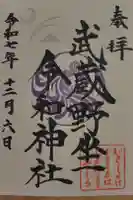 奉拝
武蔵野坐
令和神社
令和七年十二月六日